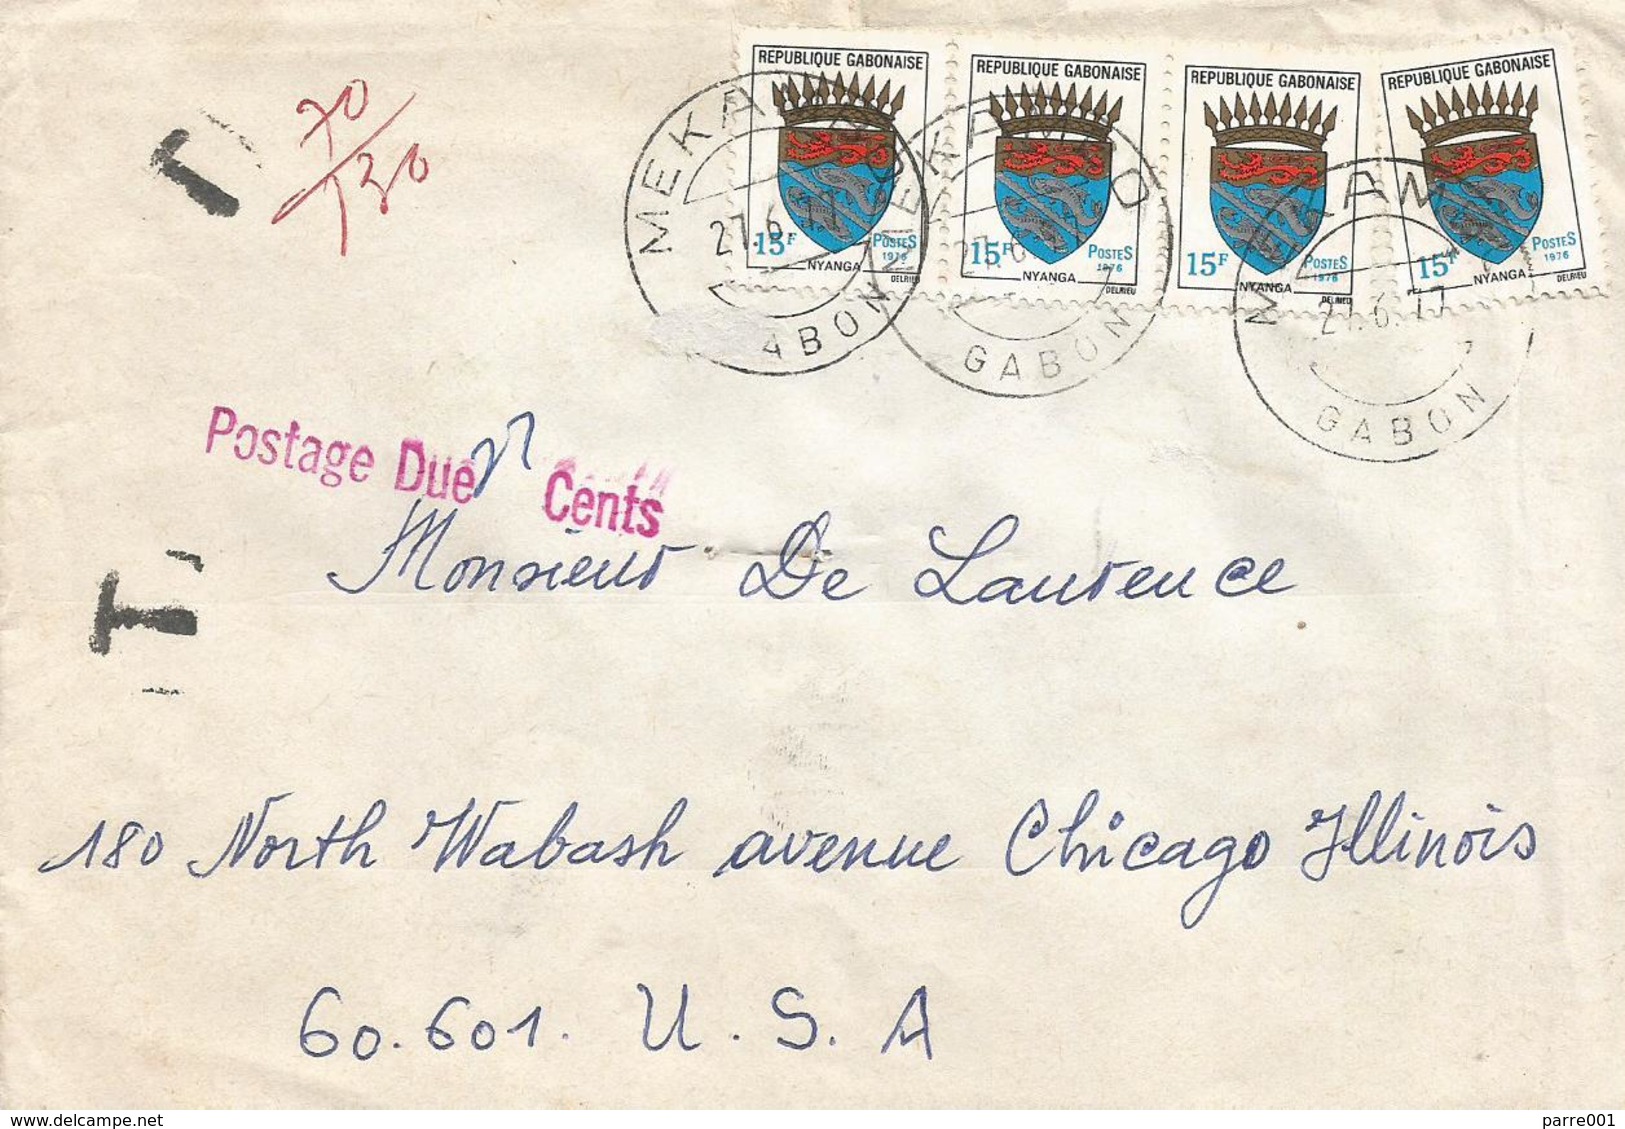 REPUBLIQUE GABONAISE
15F POSTES
1976
NYANGA
DELRIEU
REPUBLIQUE GABONAISE
15F POSTES
1976
NYANGA
DELRIEU
REPUBLIQUE GABONAISE
15F POSTES
1976
NYANGA
DELRIEU
REPUBLIQUE GABONAISE
15F POSTES
1976
NYANGA
DELRIEU
27.6.77
GABON
MEKAMBO
GABON
27.6.77
GABON
T
70
130
Postage Due Cents
T
Monsieur De Laurence
180 North Wabash avenue Chicago Illinois
60.601. U.S.A
© delcampe.net
parre001